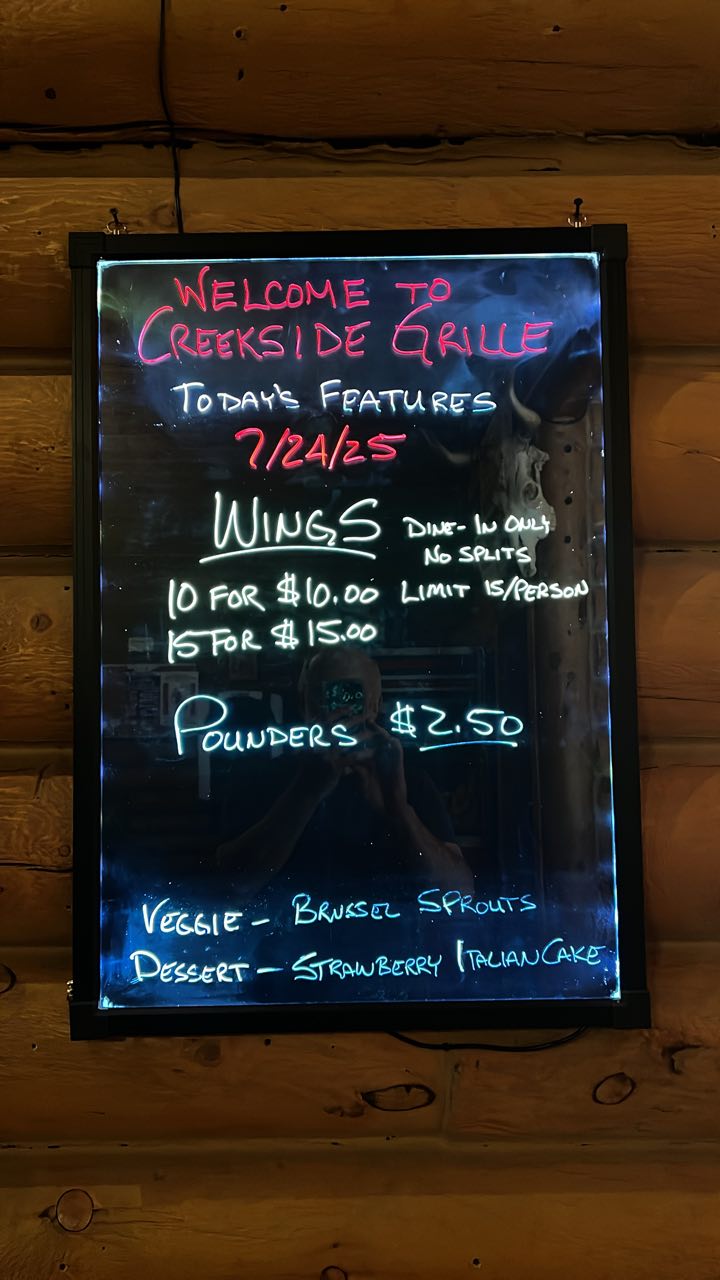 WELCOME TO
CREEKSIDE GRILLE
TODAY'S FEATURES
7/24/25
WINGS DINE-IN ONLY
NO SPLITS
10 FOR $10.00 LIMIT 15/PERSON
15 FOR $15.00
POUNDERS $2.50
VEGGIE - BRUSSEL SPROUTS
DESSERT - STRAWBERRY ITALIAN CAKE